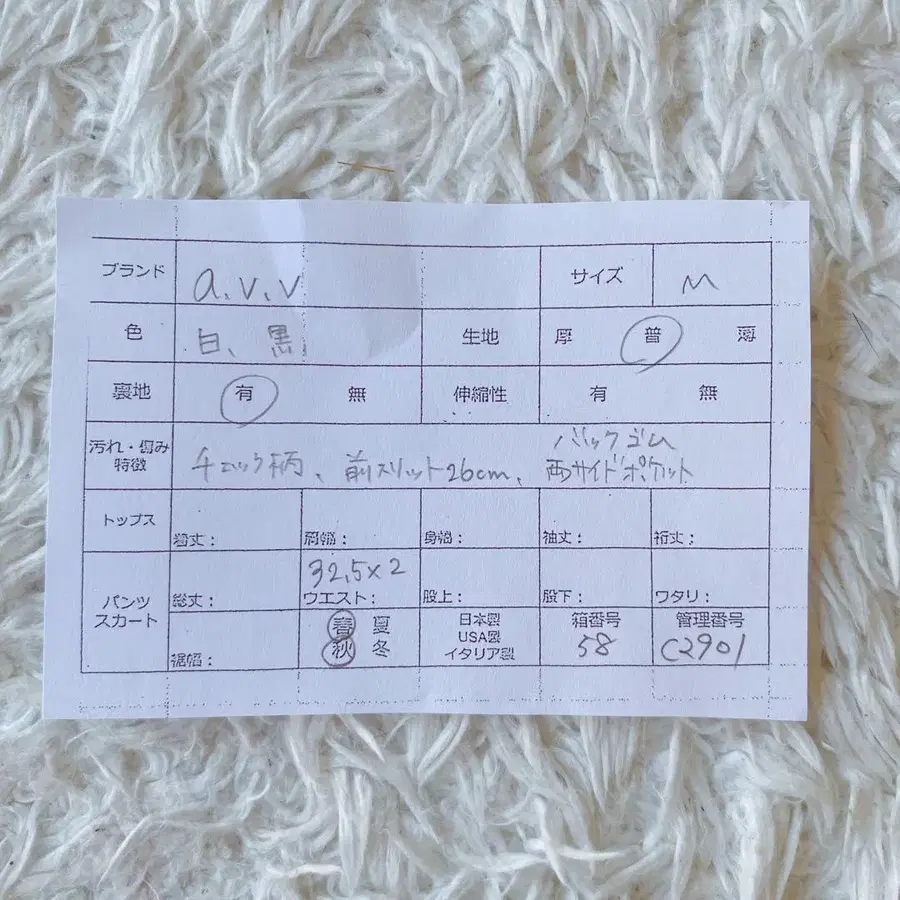 ブランド a.v.v サイズ M
色 白、黒 生地 厚 普 薄
裏地 有 無 伸縮性 有 無
汚れ・傷み
特徴
チェック柄、前スリット26cm、
バックゴム
両サイドポケット
トップス 着丈: 肩幅: 身幅: 袖丈: 裄丈:
パンツ
スカート
総丈: 32.5×2
ウエスト: 股上: 股下: ワタリ:
裾幅:
春 夏
秋 冬
日本製
USA製
イタリア製
箱番号
58
管理番号
C2901